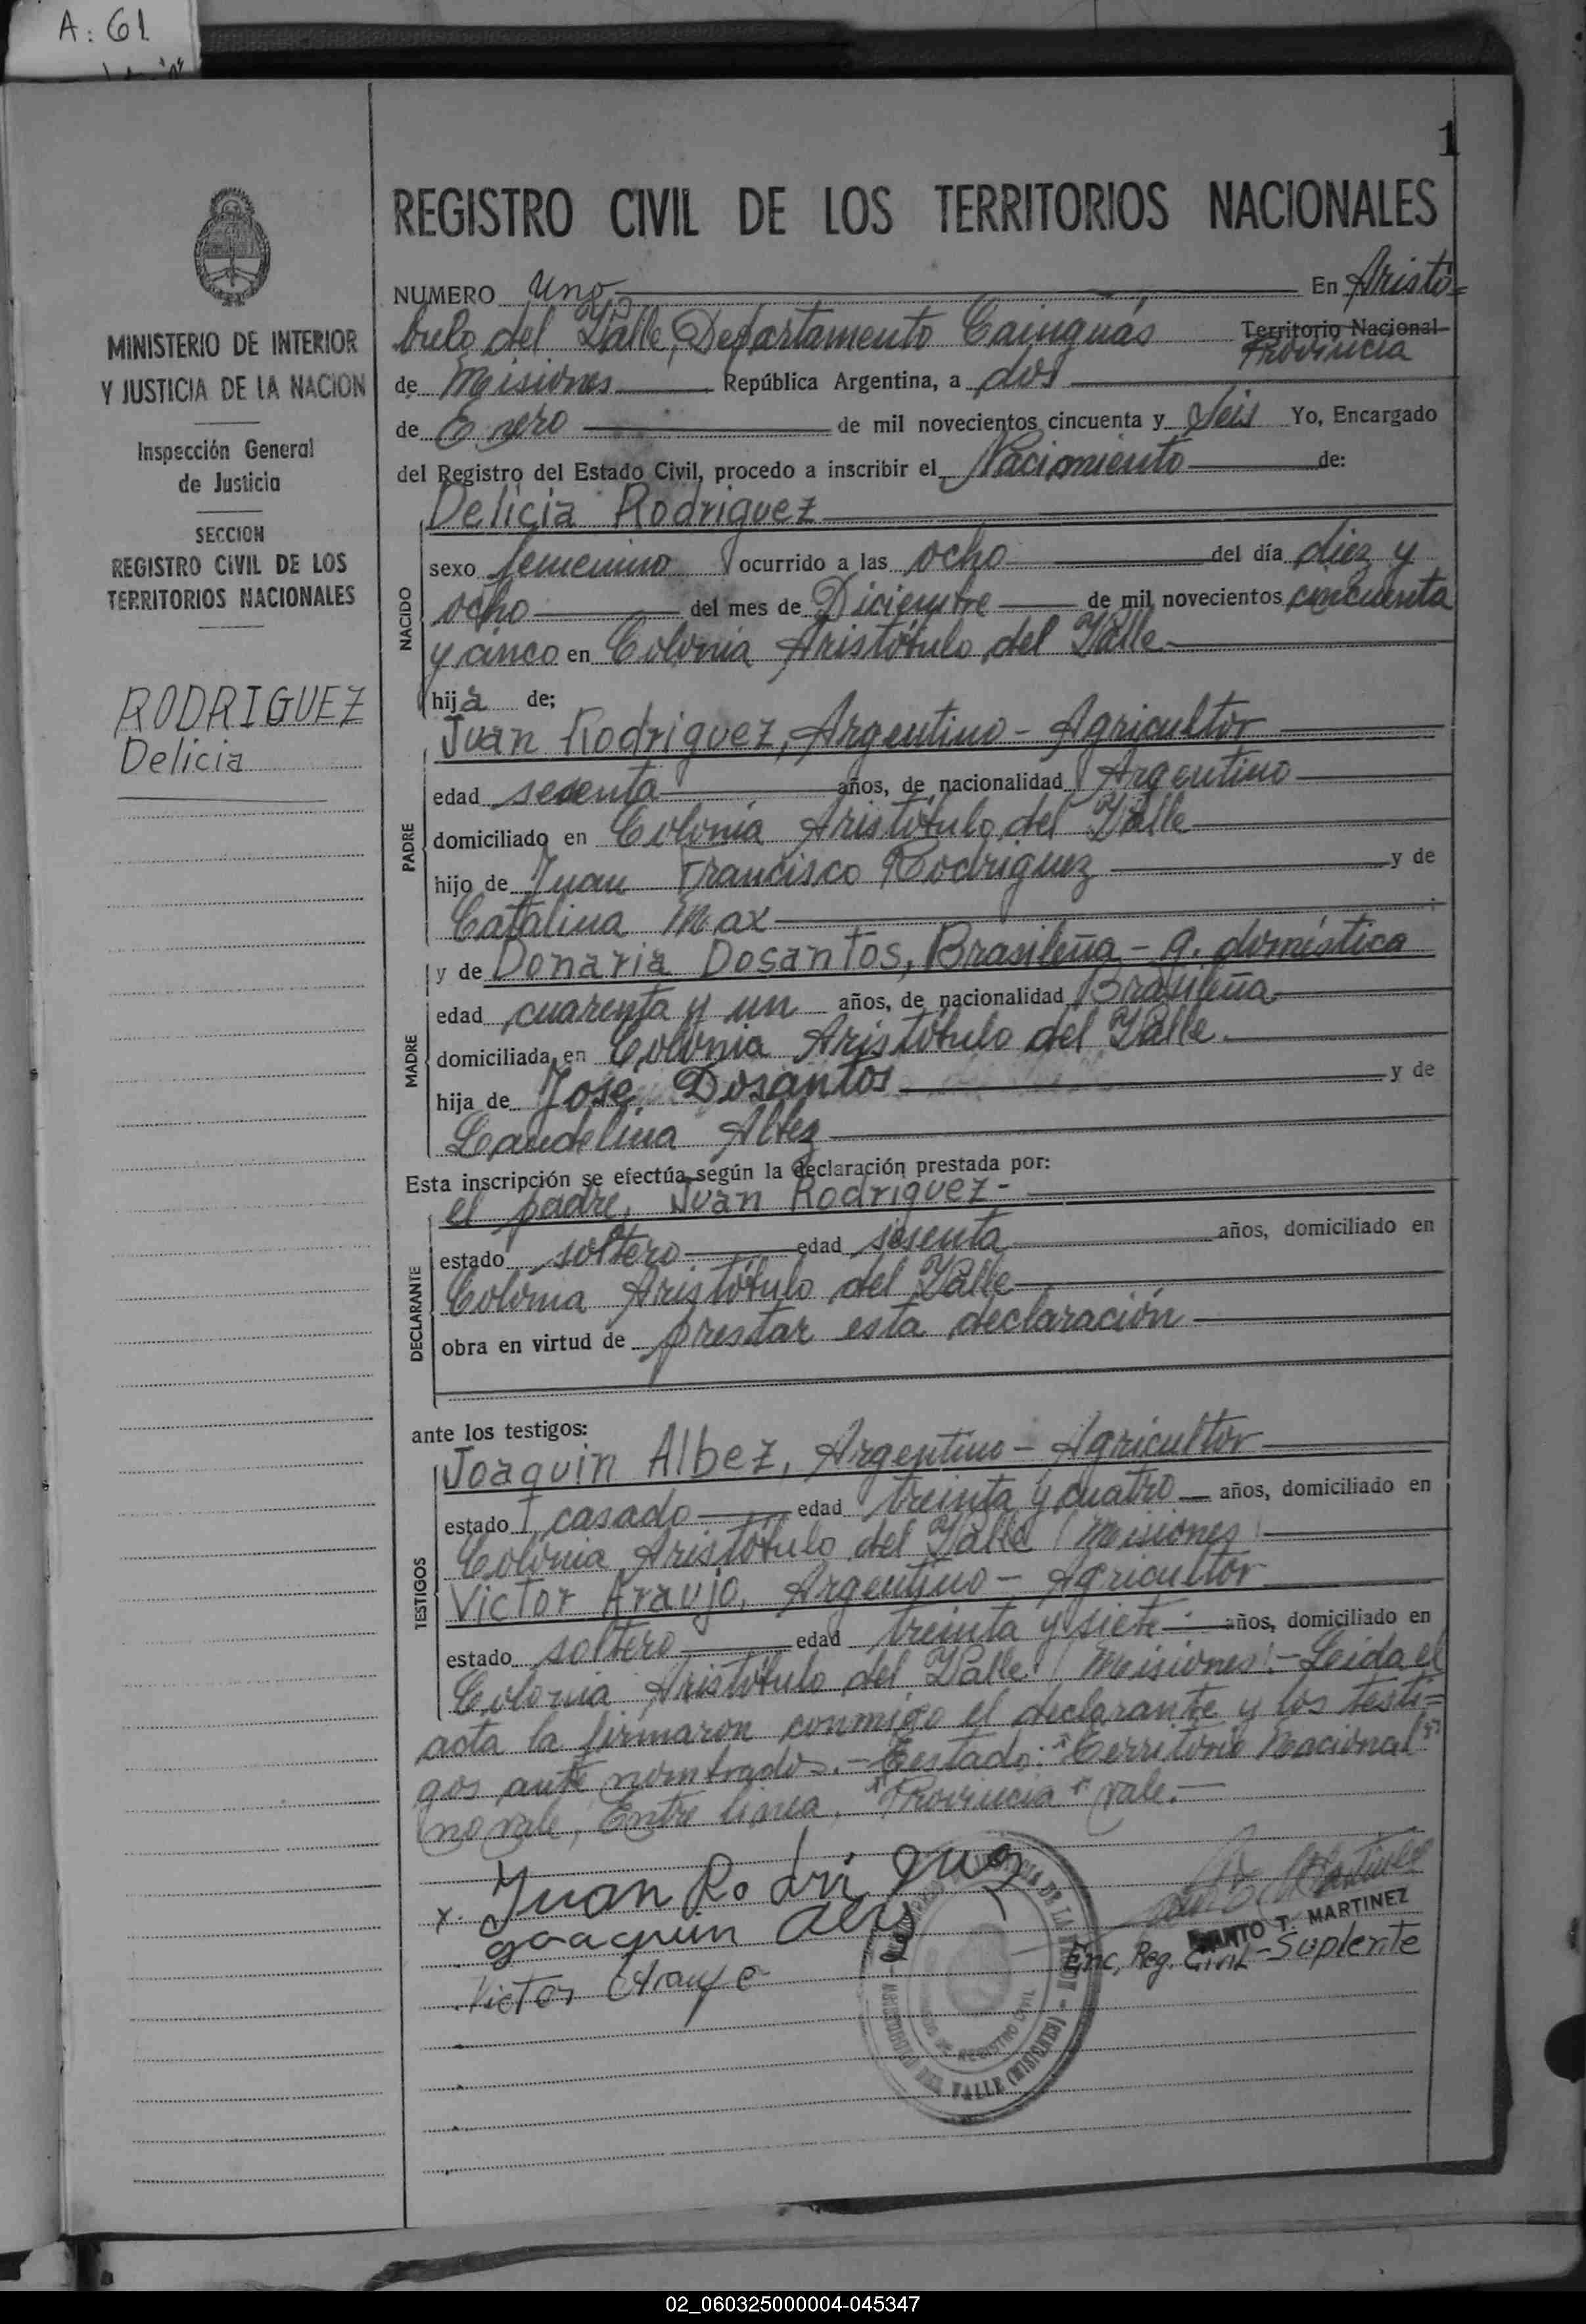 A: 61
1
REGISTRO CIVIL DE LOS TERRITORIOS NACIONALES
MINISTERIO DE INTERIOR
Y JUSTICIA DE LA NACION
Inspección General
de Justicia
SECCION
REGISTRO CIVIL DE LOS
TERRITORIOS NACIONALES
RODRIGUEZ
Delicia
NUMERO uno En Aristó=
bulo del Valle, Departamento Cainguás Territorio Nacional
Provincia
de Misiones República Argentina, a dos
de Enero de mil novecientos cincuenta y Seis Yo, Encargado
del Registro del Estado Civil, procedo a inscribir el Nacimiento de:
Delicia Rodriguez
NACIDO
sexo femenino ocurrido a las ocho del día diez y
ocho del mes de Diciembre de mil novecientos cincuenta
y cinco en Colonia Aristóbulo del Valle
hija de;
PADRE
Juan Rodriguez, Argentino - Agricultor
edad sesenta años, de nacionalidad Argentino
domiciliado en Colonia Aristóbulo del Valle
hijo de Juan Francisco Rodriguez y de
Catalina Max
MADRE
y de Donaria Dosantos, Brasileña - q. doméstica
edad cuarenta y un años, de nacionalidad Brasileña
domiciliada en Colonia Aristóbulo del Valle
hija de José Dosantos y de
Candelina Albez
Esta inscripción se efectúa según la declaración prestada por:
DECLARANTE
el padre, Juan Rodriguez -
estado soltero edad sesenta años, domiciliado en
Colonia Aristóbulo del Valle
obra en virtud de prestar esta declaración
ante los testigos:
TESTIGOS
Joaquin Albez, Argentino - Agricultor
estado casado edad treinta y cuatro años, domiciliado en
Colonia Aristóbulo del Valle (Misiones)
Victor Araujo, Argentino - Agricultor
estado soltero edad treinta y siete años, domiciliado en
Colonia Aristóbulo del Valle (Misiones).- Leida el
acta la firmaron conmigo el declarante y los testi=
gos ante nombrados.- Testado: "Territorio Nacional"
no vale, Entre linea, "Provincia" vale.-
x. Juan Rodriguez
Joaquin
Victor Araujo
T. MARTINEZ
Enc, Reg. Civil - Suplente
DE LA NACION
REGISTRO CIVIL
DEL VALLE (MISIONES)
02_060325000004-045347